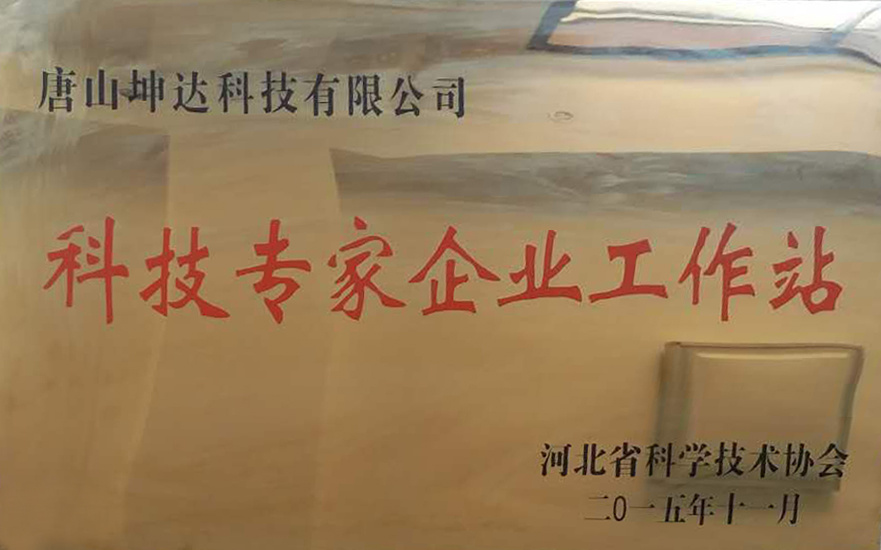 唐山坤达科技有限公司
科技专家企业工作站
河北省科学技术协会
二0一五年十一月